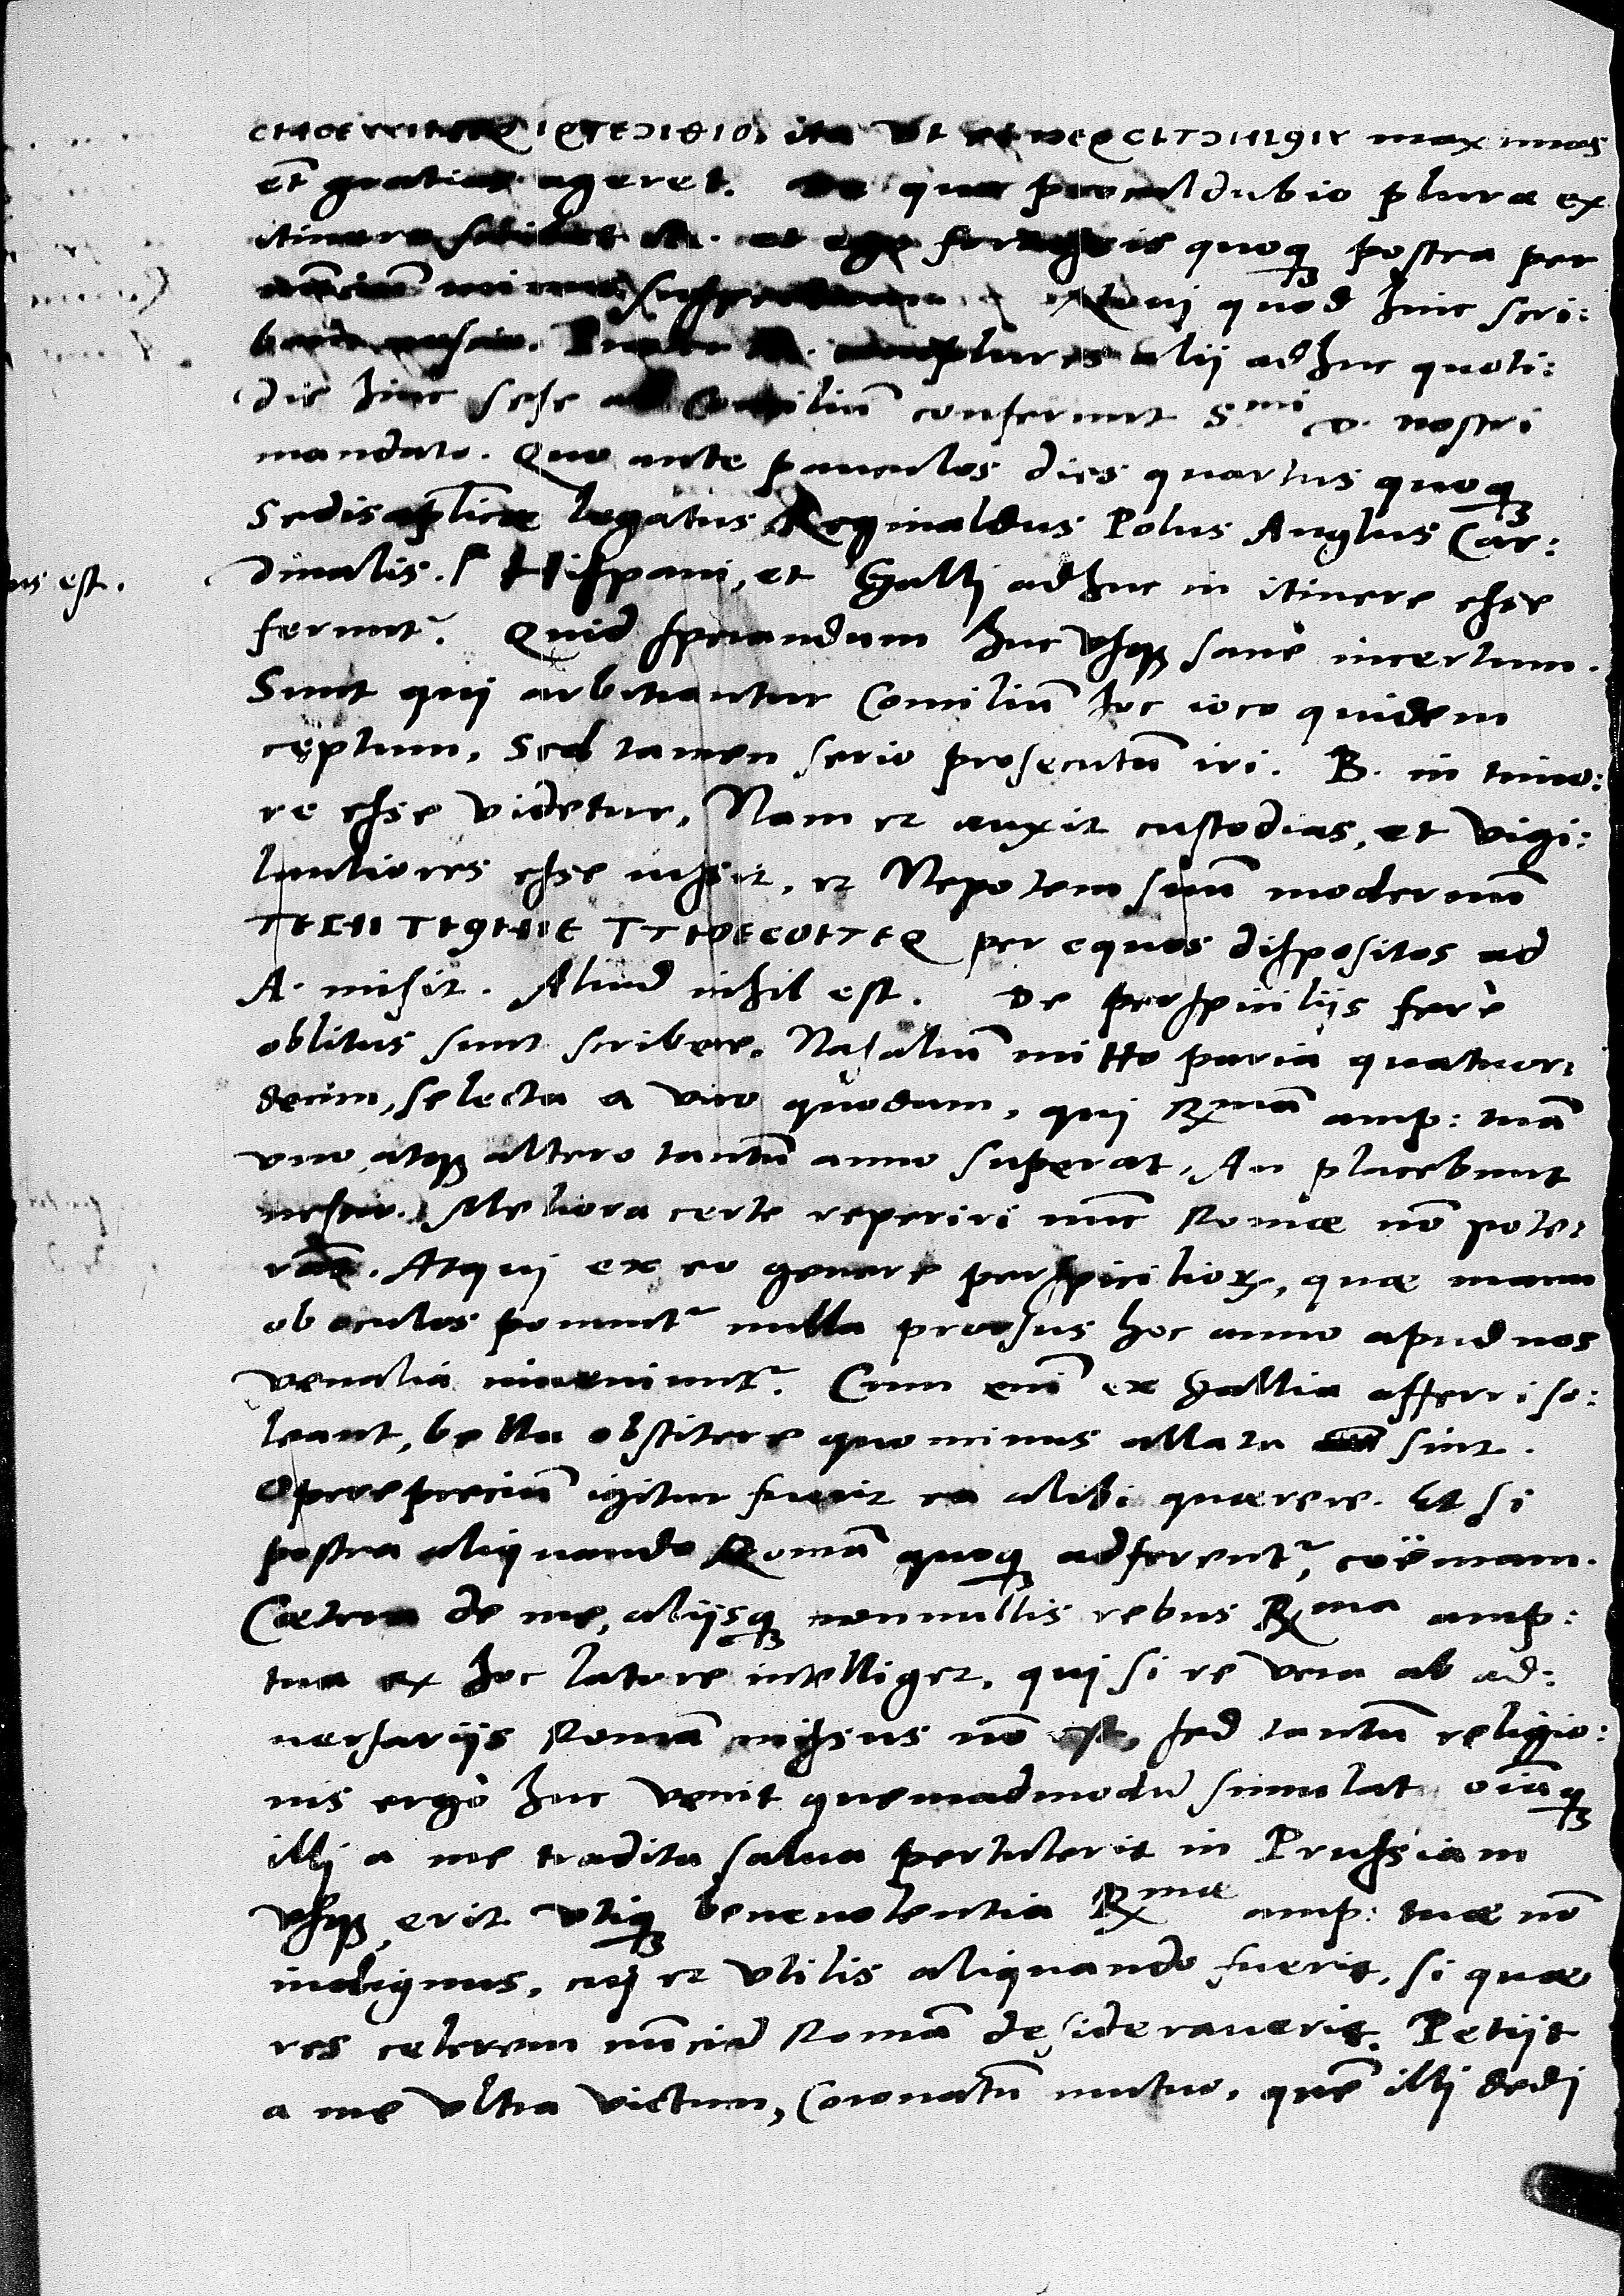 ita ut et maximas
et̃ gratias ageret. De qua proculdubio plura ex
itinere et ego quoq postea per
nunciũ minus quod hinc scri:
plures alij adhuc quoti:
die hinc sese ad Conciliũ conferunt S.mi D. nostri
mandato. Quo ante pauculos dies quartus quoq
Sedis aplicæ legatus Reginaldus Polus Anglus Car:
us est. dinalis. Γ Hispani, et Galli adhuc in itinere esse
ferunt̃. Quid sperandum huc usq sanè incertum.
Sunt qui arbitrantur Conciliũ hoc ioco quidem
cęptum, sed tamen serio prosecutũ iri. B. in timo:
re esse videtur, Nam et auxit custodias, et vigi:
lantiores esse iussit, et Nepotem suũ modernũ
per equos dispositos ad
A. misit. Aliud nihil est. De perspicilijs ferè
oblitus sum scribere. Nasaliũ mitto paria quatuor:
decim, selecta a viro quodam, qui Rmã amp: tuã
uno atq altero tantũ anno superat. An placebunt
nescio. Meliora certe reperiri nũc Romæ nõ pote:
rãt. Atqui ex eo genere perspicilioꝝ, quæ manu
ob oculos ponunt̃ nulla prorsus hoc anno apud nos
venalia inveniunt̃. Cum eni ex Gallia afferri so:
leant, bella obstitere quominus allata sint.
Operæpreciũ igitur fuerit ea alibi quærere. Et si
postea aliquando Romã quoq adferent̃, coëmam.
Cætera de me, alijsq nonnullis rebus Rma amp:
tua ex hoc latore intelliget, qui si re vera ab ad:
versarijs Romã missus nõ est, sed tantũ religio:
nis ergò huc venit quemadmodũ simulat oiãq
illi a me tradita salva pertulerit in Prussiam
usq, erit utiq benevolentia Rmæ amp: tuæ nõ
indignus, cui et utilis aliquando fuerit, si quæ
res celerem nũciũ Romã desideraverit. Petijt
a me ultra victum, Coronatũ mutuo, quẽ illi dedi